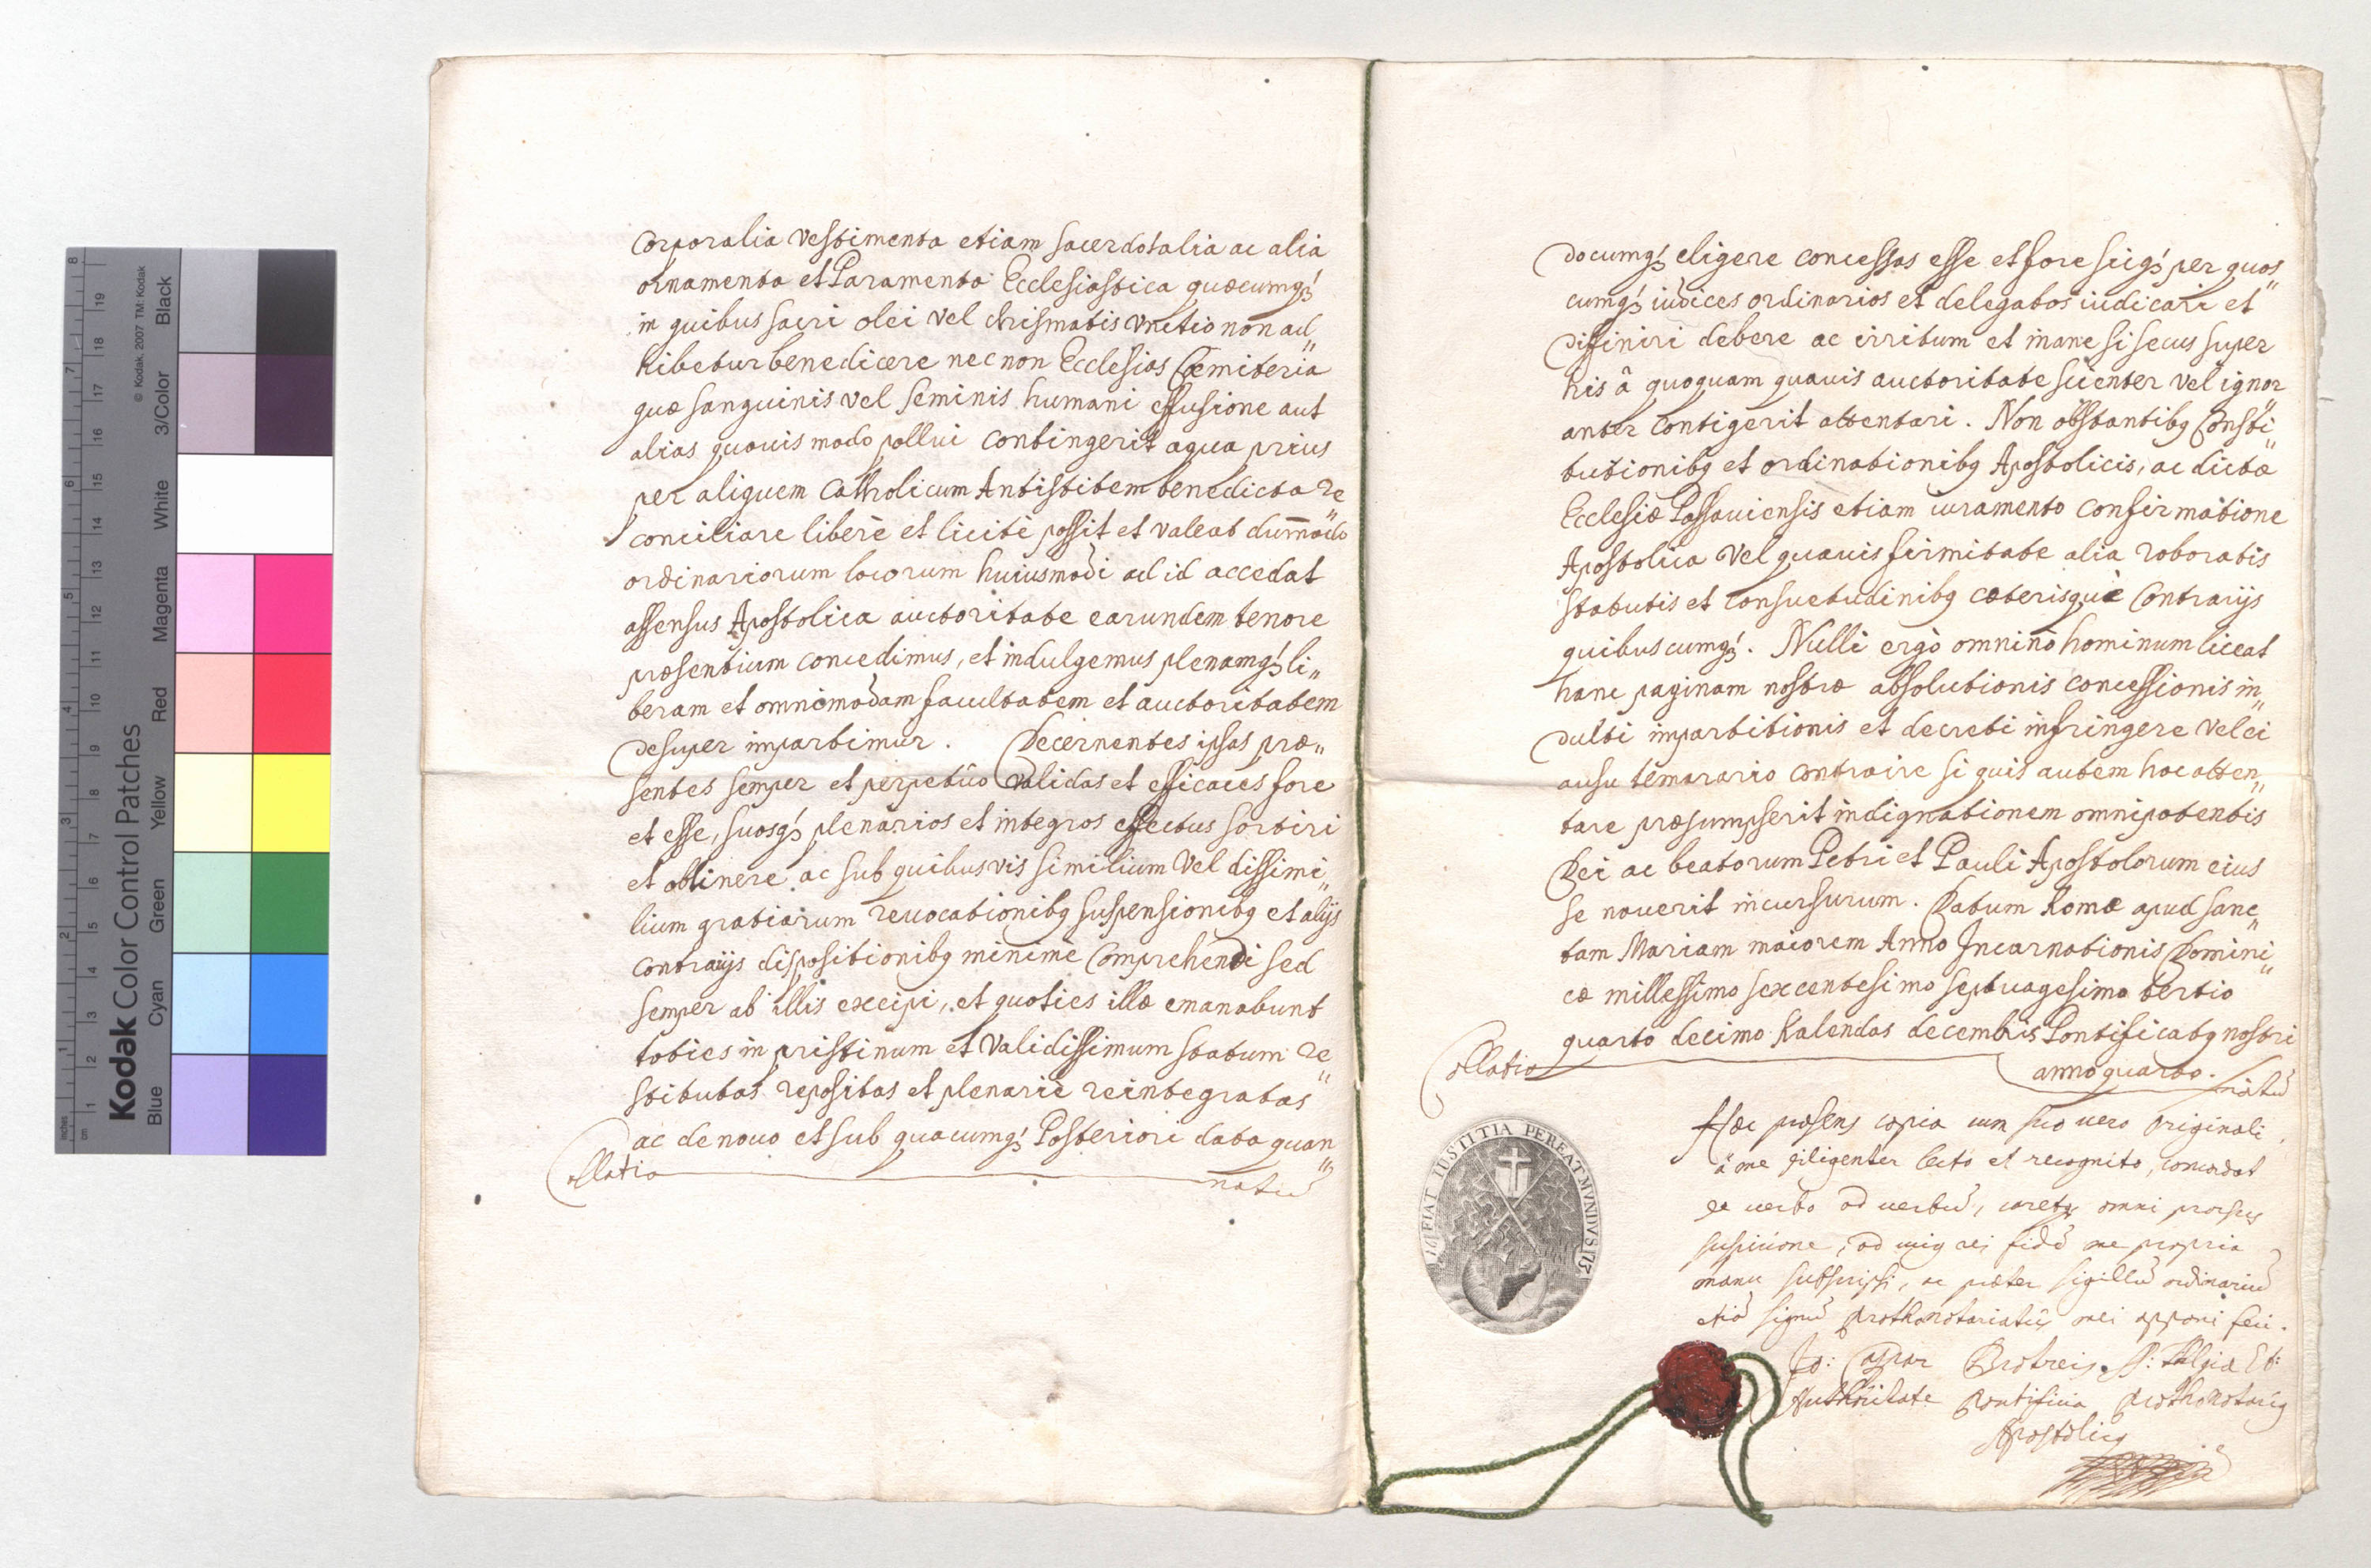 Corporalia Vestimenta etiam sacerdotalia ac alia
ornamenta et Paramenta Ecclesiastica quæcumq́ꝫ
in quibus sacri olei vel chrismatis Vnctio non ad„
hibetur benedicere nec non Ecclesias Cœmiteria
quæ sanguinis vel seminis humani effusione aut
alias quouis modo pollui contingerit aqua prius
per aliquem Catholicum Antistitem benedicta re„
conciliare liberè et licitè possit et valeat dum̄odo
ordinariorum locorum huiusmodi ad id accedat
assensus Apostolica auctoritate earundem tenore
præsentium concedimus, et indulgemus plenamq́ꝫ li„
beram et omnimodam facultatem et auctoritatem
desuper impartimur. Decernentes ipsas præ„
sentes semper et perpetuo validas et efficaces fore
et esse, suosq́ꝫ plenarios et integros effectus sortiri
et obtinere ac sub quibusvis similium Vel dissimi„
lium gratiarum reuocationibꝫ suspensionibꝫ et alijs
contrarijs dispositionibꝫ minimè Comprehendi sed
semper ab illis excipi, et quoties illæ emanabunt
toties in pristinum et Validissimum statum re„
stitutas repositas et plenariè reintegratas
ac de nouo et sub quacumq́ꝫ Posteriori data quan„
Collatio
natū
documq́ꝫ eligere concessas esse et fore sicq́ꝫ per quos„
cumq́ꝫ iudices ordinarios et delegatos iudicari et
difiniri debere ac irritum et inane si secus super
his â quoquam quauis auctoritate scienter vel ignor„
anter contigerit attentari. Non obstantibꝫ Consti„
tutionibꝫ et ordinationibꝫ Apostolicis, ac dictæ
Ecclesiæ Passauiensis etiam iuramento confirmatione
Apostolica Vel quauis firmitate alia roboratis
statutis et consuetudinibꝫ cæterisquè Contrarijs
quibuscumq́ꝫ. Nulli ergò omninò hominum liceat
hanc paginam nostræ absolutionis concessionis in„
dulti impartitionis et decreti infringere vel ei
ausu temarario contraire si quis autem hoc atten„
tare præsumpserit indignationem omnipotentis
Dei ac beatorum Petri et Pauli Apostolorum eius
se nouerit incursurum. Datum Romæ apud sanc„
tam Mariam maiorem Anno Incarnationis Domini„
cæ millessimo sexcentesimo septuagesimo tertio
quarto decimo Kalendas decembris Pontificatꝫ nostri
anno quarto.
Collatio
natū
FIAT IUSTITIA PEREAT MVNDVS
Hæc præsens copia cum suo uero originali,
à me diligenter lecto et recognito, concordat
de uerbo ad uerbū, caretqꝫ omni prorsus
suspicione, ad cuiꝫ rei fidē me propria
manu subscripsi, ac præter sigillū ordinariū
etiā signū prothonotariatus mei apponi feci.
Jo: Caspar
Authoritate Pontificia Prothonotariꝫ
Apostolicꝫ
Kodak Color Control Patches
© Kodak, 2007 TM: Kodak
Blue Cyan Green Yellow Red Magenta White 3/Color Black
inches 1 2 3 4 5 6 7 8
cm 1 2 3 4 5 6 7 8 9 10 11 12 13 14 15 16 17 18 19